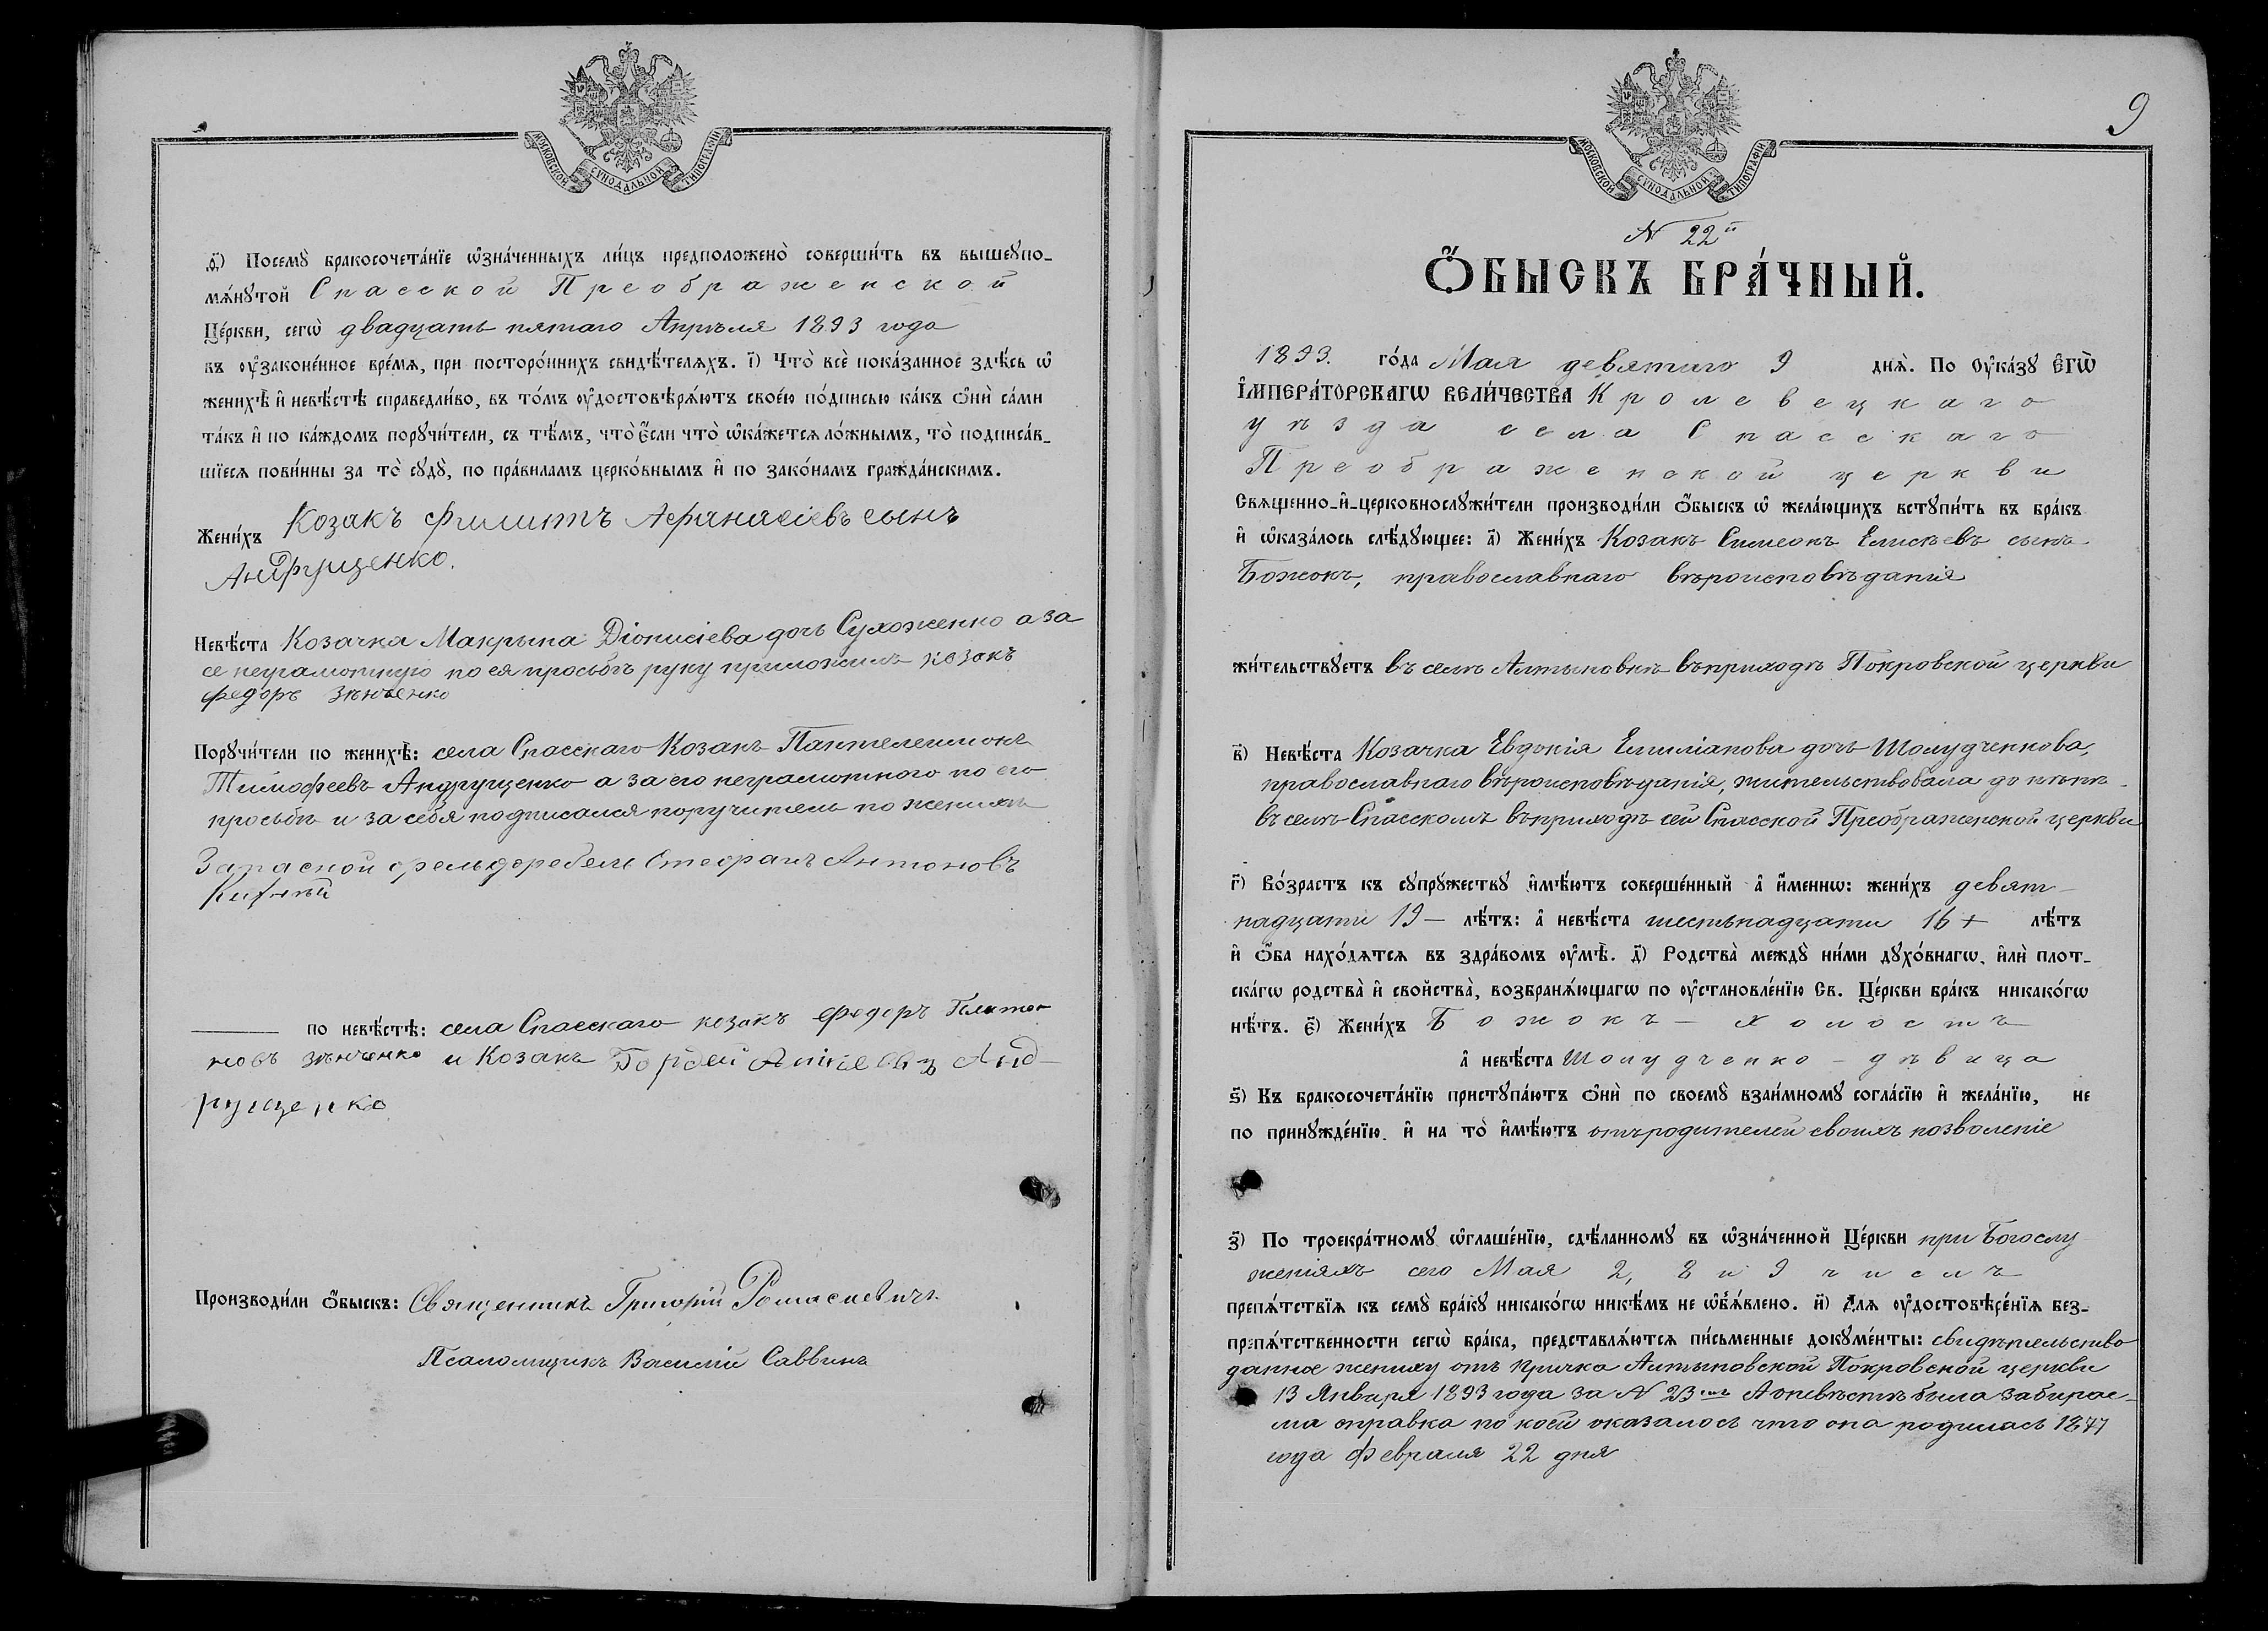 МОСКОВСКОЙ СѴНОДАЛЬНОЙ ТИПОГРАФІИ
д҃і) Посемꙋ̀ бракосочета́нїе ѡ҆зна́ченныхъ ли́цъ предположено̀ соверши́ть въ вышеꙋпо-
мѧ́нꙋтой Спасской Преображенской
Це́ркви, сегѡ̀ двадцать пятаго Апрѣля 1893 года
въ ᲂу҆законе́нное вре́мѧ, при посторо́ннихъ свидѣ́телѧхъ. і҃) Что̀ всѐ пока́занное здѣ́сь ѡ҆
женихѣ̀ и҆ невѣ́стѣ справедли́во, въ то́мъ ᲂу҆достовѣрѧ́ютъ свое́ю по́дписью ка́къ ѻ҆нѝ са́ми
та́къ и҆ по ка́ждомъ порꙋчи́тели, съ тѣ́мъ, что̀ є҆́сли что̀ ѡ҆ка́жетсѧ ло́жнымъ, то̀ подписа́в-
шїесѧ пови́нны за то̀ сꙋдꙋ̀, по пра́виламъ церко́внымъ и҆ по зако́намъ гражда́нскимъ.
Жени́хъ Козакъ Филиппъ Афанасіевъ сынъ
Андрущенко.
Невѣ́ста Козачка Макрына Діонисіева дочь Сухоженко а за
ее неграмотную по ея просьбѣ руку приложилъ козакъ
Федоръ Зѣнченко
Порꙋчи́тели по женихѣ̀: села Спасскаго Козакъ Пантелеимонъ
Тимофеевъ Андрущенко а за его неграмотного по его
просьбѣ и за себя подписался поручитель по женихѣ
Запасной фельдфебель Стефанъ Антоновъ
по невѣ́стѣ: села Спасскаго козакъ Федоръ Плато-
новъ Зѣнченко и Козакъ Гордей Анніевъ Анд-
рущенко
Производи́ли ѻ҆́быскъ: Священникъ Григорій Ромасиевичъ
Псаломщикъ Василій Саввинъ
9
МОСКОВСКОЙ СѴНОДАЛЬНОЙ ТИПОГРАФІИ
N 22й
Ѻ҆БЫСКЪ БРА́ЧНЫЙ.
1893. го́да Мая девятаго 9 днѧ̀. По ᲂу҆ка́зꙋ Є҆ГѠ̀
І҆МПЕРА́ТОРСКАГѠ ВЕЛИ́ЧЕСТВА Кролевецкаго
уѣзда села Спасскаго
Преображенской церкви
Свѧщенно-и҆-церковнослꙋжи́тели производи́ли ѻ҆́быскъ ѡ҆ жела́ющихъ встꙋпи́ть въ бра́къ
и҆ ѡ҆каза́лось слѣ́дꙋющее: а҃) Жени́хъ Козакъ Симеонъ Елисѣевъ сынъ
Божокъ, православнаго вѣроисповѣданія
жи́тельствꙋетъ въ селѣ Алтыновкѣ въ приходѣ Покровской церкви
в҃) Невѣ́ста Козачка Евдокія Емиліанова дочь Шолудченкова,
православнаго вѣроисповѣданія, жительствовала до нынѣ
въ селѣ Спасскомъ въ приходѣ сей Спасской Преображенской церкви
г҃) Во́зрастъ къ сꙋпрꙋ́жествꙋ и҆мѣ́ютъ соверше́нный а҆ и҆́меннѡ: жени́хъ девят-
надцати 19 - лѣ́тъ: а҆ невѣ́ста шестьнадцати 16 + лѣ́тъ
и҆ ѻ҆́ба нахо́дѧтсѧ въ здра́вомъ ᲂу҆мѣ̀. д҃) Родства̀ междꙋ̀ ни́ми дꙋхо́внагѡ, и҆лѝ плот-
ска́гѡ родства̀ и҆ свойства̀, возбранѧ́ющагѡ по ᲂу҆становле́нїю Св. Це́ркви бра́къ никако́гѡ
нѣ́тъ. є҃) Жени́хъ Божокъ - холостъ
а҆ невѣ́ста Шолудченко - дѣвица
ѕ҃) Къ бракосочета́нїю пристꙋпа́ютъ ѻ҆нѝ по своемꙋ̀ взаи́мномꙋ согла́сїю и҆ жела́нїю, не
по принꙋжде́нїю, и҆ на то̀ и҆мѣ́ютъ отъ родителей своихъ позволеніе
з҃) По троекра́тномꙋ ѡ҆глаше́нїю, сдѣ́ланномꙋ въ ѡ҆зна́ченной Це́ркви при Богослу
женіяхъ сего Мая 2, 8 и 9 числъ
препѧ́тствїѧ къ семꙋ̀ бра́кꙋ никако́гѡ никѣ́мъ не ѡ҆б̾ѧ́влено. и҃) Длѧ ᲂу҆достовѣре́нїѧ без-
препѧ́тственности сегѡ̀ бра́ка, представлѧ́ютсѧ пи́сьменные докꙋме́нты: свидѣтельство
данное жениху отъ причта Алтыновской Покровской церкви
13 Января 1893 года за N 23 имъ А о невѣстѣ была забирае-
ма справка по коей оказалось что она родилась 1877
года Февраля 22 дня